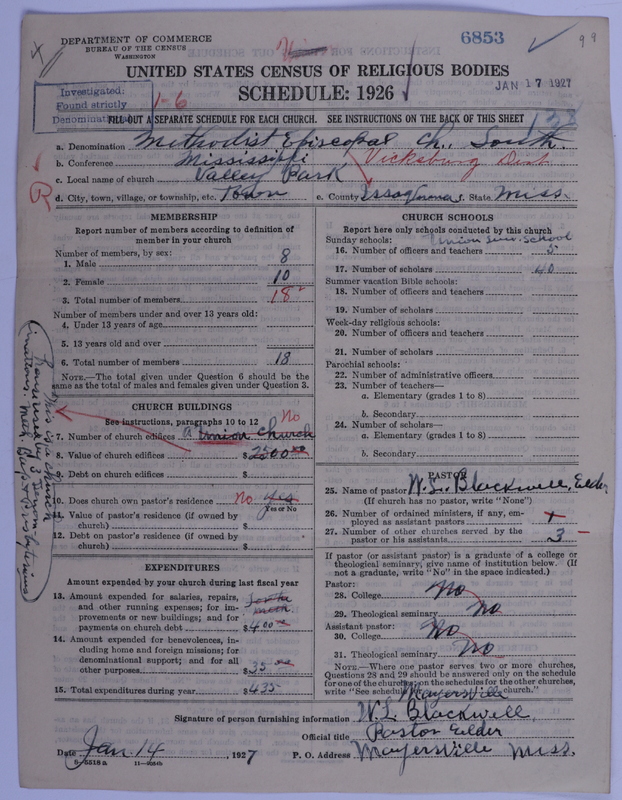 DEPARTMENT OF COMMERCE
BUREAU OF THE CENSUS
WASHINGTON
6853
99
UNITED STATES CENSUS OF RELIGIOUS BODIES
SCHEDULE: 1926
JAN 17 1927
Investigated:
Found strictly
Denominational
1-6
138
FILL OUT A SEPARATE SCHEDULE FOR EACH CHURCH. SEE INSTRUCTIONS ON THE BACK OF THIS SHEET
a. Denomination Methodist Episcopal Ch., South.
b. Conference Mississippi Vicksburg Dist
c. Local name of church Valley Park
R
d. City, town, village, or township, etc. Town e. County Issaquena f. State Miss.
MEMBERSHIP
Report number of members according to definition of
member in your church
Number of members, by sex:
1. Male 8
2. Female 10
3. Total number of members 18
Number of members under and over 13 years old:
4. Under 13 years of age
5. 13 years old and over
6. Total number of members 18
NOTE.—The total given under Question 6 should be the
same as the total of males and females given under Question 3.
CHURCH BUILDINGS
See instructions, paragraphs 10 to 12 no
7. Number of church edifices a Union Church
8. Value of church edifices $ 2500
9. Debt on church edifices $
10. Does church own pastor's residence no yes
Yes or No
11. Value of pastor's residence (if owned by
church) $
12. Debt on pastor's residence (if owned by
church) $
This is a church
House used by 3 Denom
inations.
EXPENDITURES
Amount expended by your church during last fiscal year
13. Amount expended for salaries, repairs,
and other running expenses; for im-
provements or new buildings; and for
payments on church debt $ 400
14. Amount expended for benevolences, in-
cluding home and foreign missions; for
denominational support; and for all
other purposes $ 35
15. Total expenditures during year $ 435
CHURCH SCHOOLS
Report here only schools conducted by this church
Sunday schools: Union Sun. School
16. Number of officers and teachers 5
17. Number of scholars 40
Summer vacation Bible schools:
18. Number of officers and teachers
19. Number of scholars
Week-day religious schools:
20. Number of officers and teachers
21. Number of scholars
Parochial schools:
22. Number of administrative officers
23. Number of teachers—
a. Elementary (grades 1 to 8)
b. Secondary
24. Number of scholars—
a. Elementary (grades 1 to 8)
b. Secondary
PASTOR
25. Name of pastor W. L. Blackwell, Elder
(If church has no pastor, write "None")
26. Number of ordained ministers, if any, em-
ployed as assistant pastors
27. Number of other churches served by the
pastor or his assistants 3
If pastor (or assistant pastor) is a graduate of a college or
theological seminary, give name of institution below. (If
not a graduate, write "No" in the space indicated.)
Pastor:
28. College No
29. Theological seminary No
Assistant pastor:
30. College No
31. Theological seminary No
NOTE.—Where one pastor serves two or more churches,
Questions 28 and 29 should be answered only on the schedule
for one of the churches; on the schedules for the other churches,
write "See schedule for Mayersville church."
Signature of person furnishing information W. L. Blackwell,
Official title Pastor Elder
Date Jan 14, 1927 P. O. Address Mayersville Miss.
8-5518 a